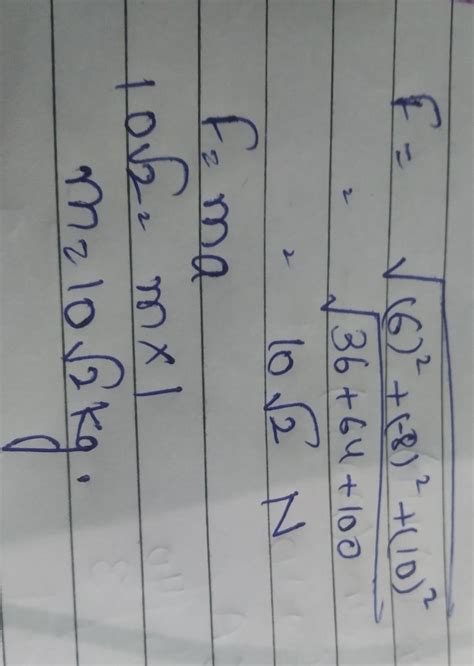 F = √(6)² + (-8)² + (10)²
= √36 + 64 + 100
= 10√2 N
F = ma
10√2 = m × 1
m = 10√2 kg.